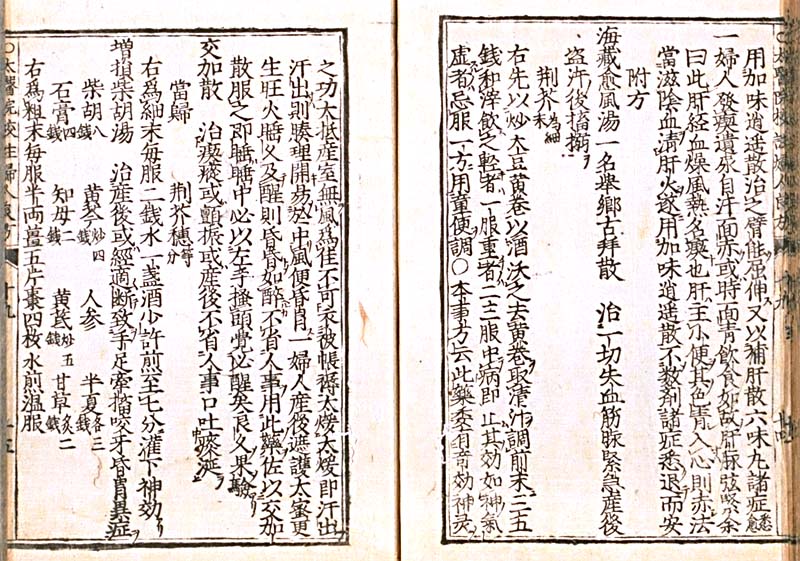 用加味逍遥散治之臂能屈伸又以補肝散六味丸諸症悉愈
一婦人發瘈遺尿自汗面赤或時面青飲食如故肝脉弦緊余
曰此肝經血燥風熱名瘈也肝主小便其色青入心則赤法
當滋陰血清肝火遂用加味逍遥散不数剤諸症悉退而安
附方
海藏愈風湯一名舉鄉古拜散 治一切失血筋脉緊急産後
盗汗後搐搦
荆芥為細末
右先以炒大豆黄卷以酒沃之去黄卷取清汁調前末三五
錢和滓飲之輕者一服重者二三服中病即止其効如神氣
虚者忌服一方用童便調○本事方云此藥委有奇効神灵
之功大抵産室無風為佳不可衣被帳褥太煖太煖即汗出
汗出則腠理開易於中風便昏冒一婦人産後遮護太宻更
生旺火睡久及醒則昏昏如醉不省人事用此藥佐以交加
散服之即睡睡中必以左手搔頭覺必醒矣良久果驗
交加散 治瘈瘲或顫振或産後不省人事口吐痰涎
當歸 荆芥穗等分
右為細末毎服二錢水一盞酒少許煎至七分灌下神効
増損柴胡湯 治産後或經適断致手足牽搐咬牙昏冒異症
柴胡八錢 黄芩炒四錢 人参 半夏各三錢
石膏四錢 知母二錢 黄茋炒五錢 甘草炙二錢
右為粗末毎服半両薑五片棗四枚水煎温服